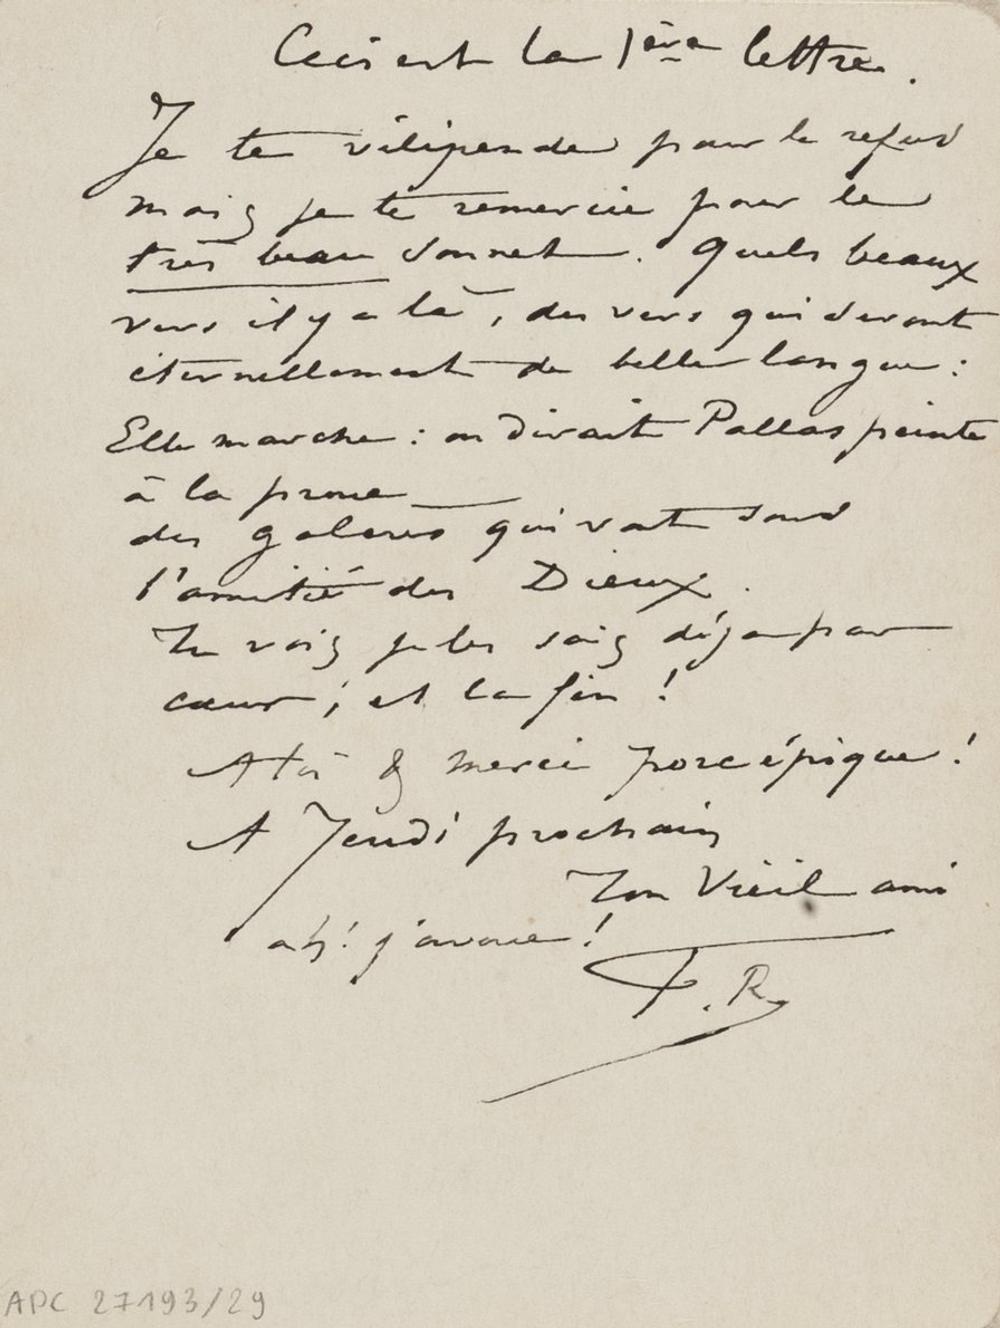 Ceci est la 1ère lettre.
Je te vilipende pour le refus
mais je te remercie pour le
très beau sonnet. Quels beaux
vers il y a là, des vers qui seront
éternellement de belle langue :
Elle marche : on dirait Pallas peinte
à la proue
des galères qui vont sous
l'amitié des Dieux.
Tu vois je les sais déja par
cœur ; et la fin !
A toi & merci porc épique !
A Jeudi prochain
Ton Vieil ami
ah! j'avoue !
F. R
APC 27193/29